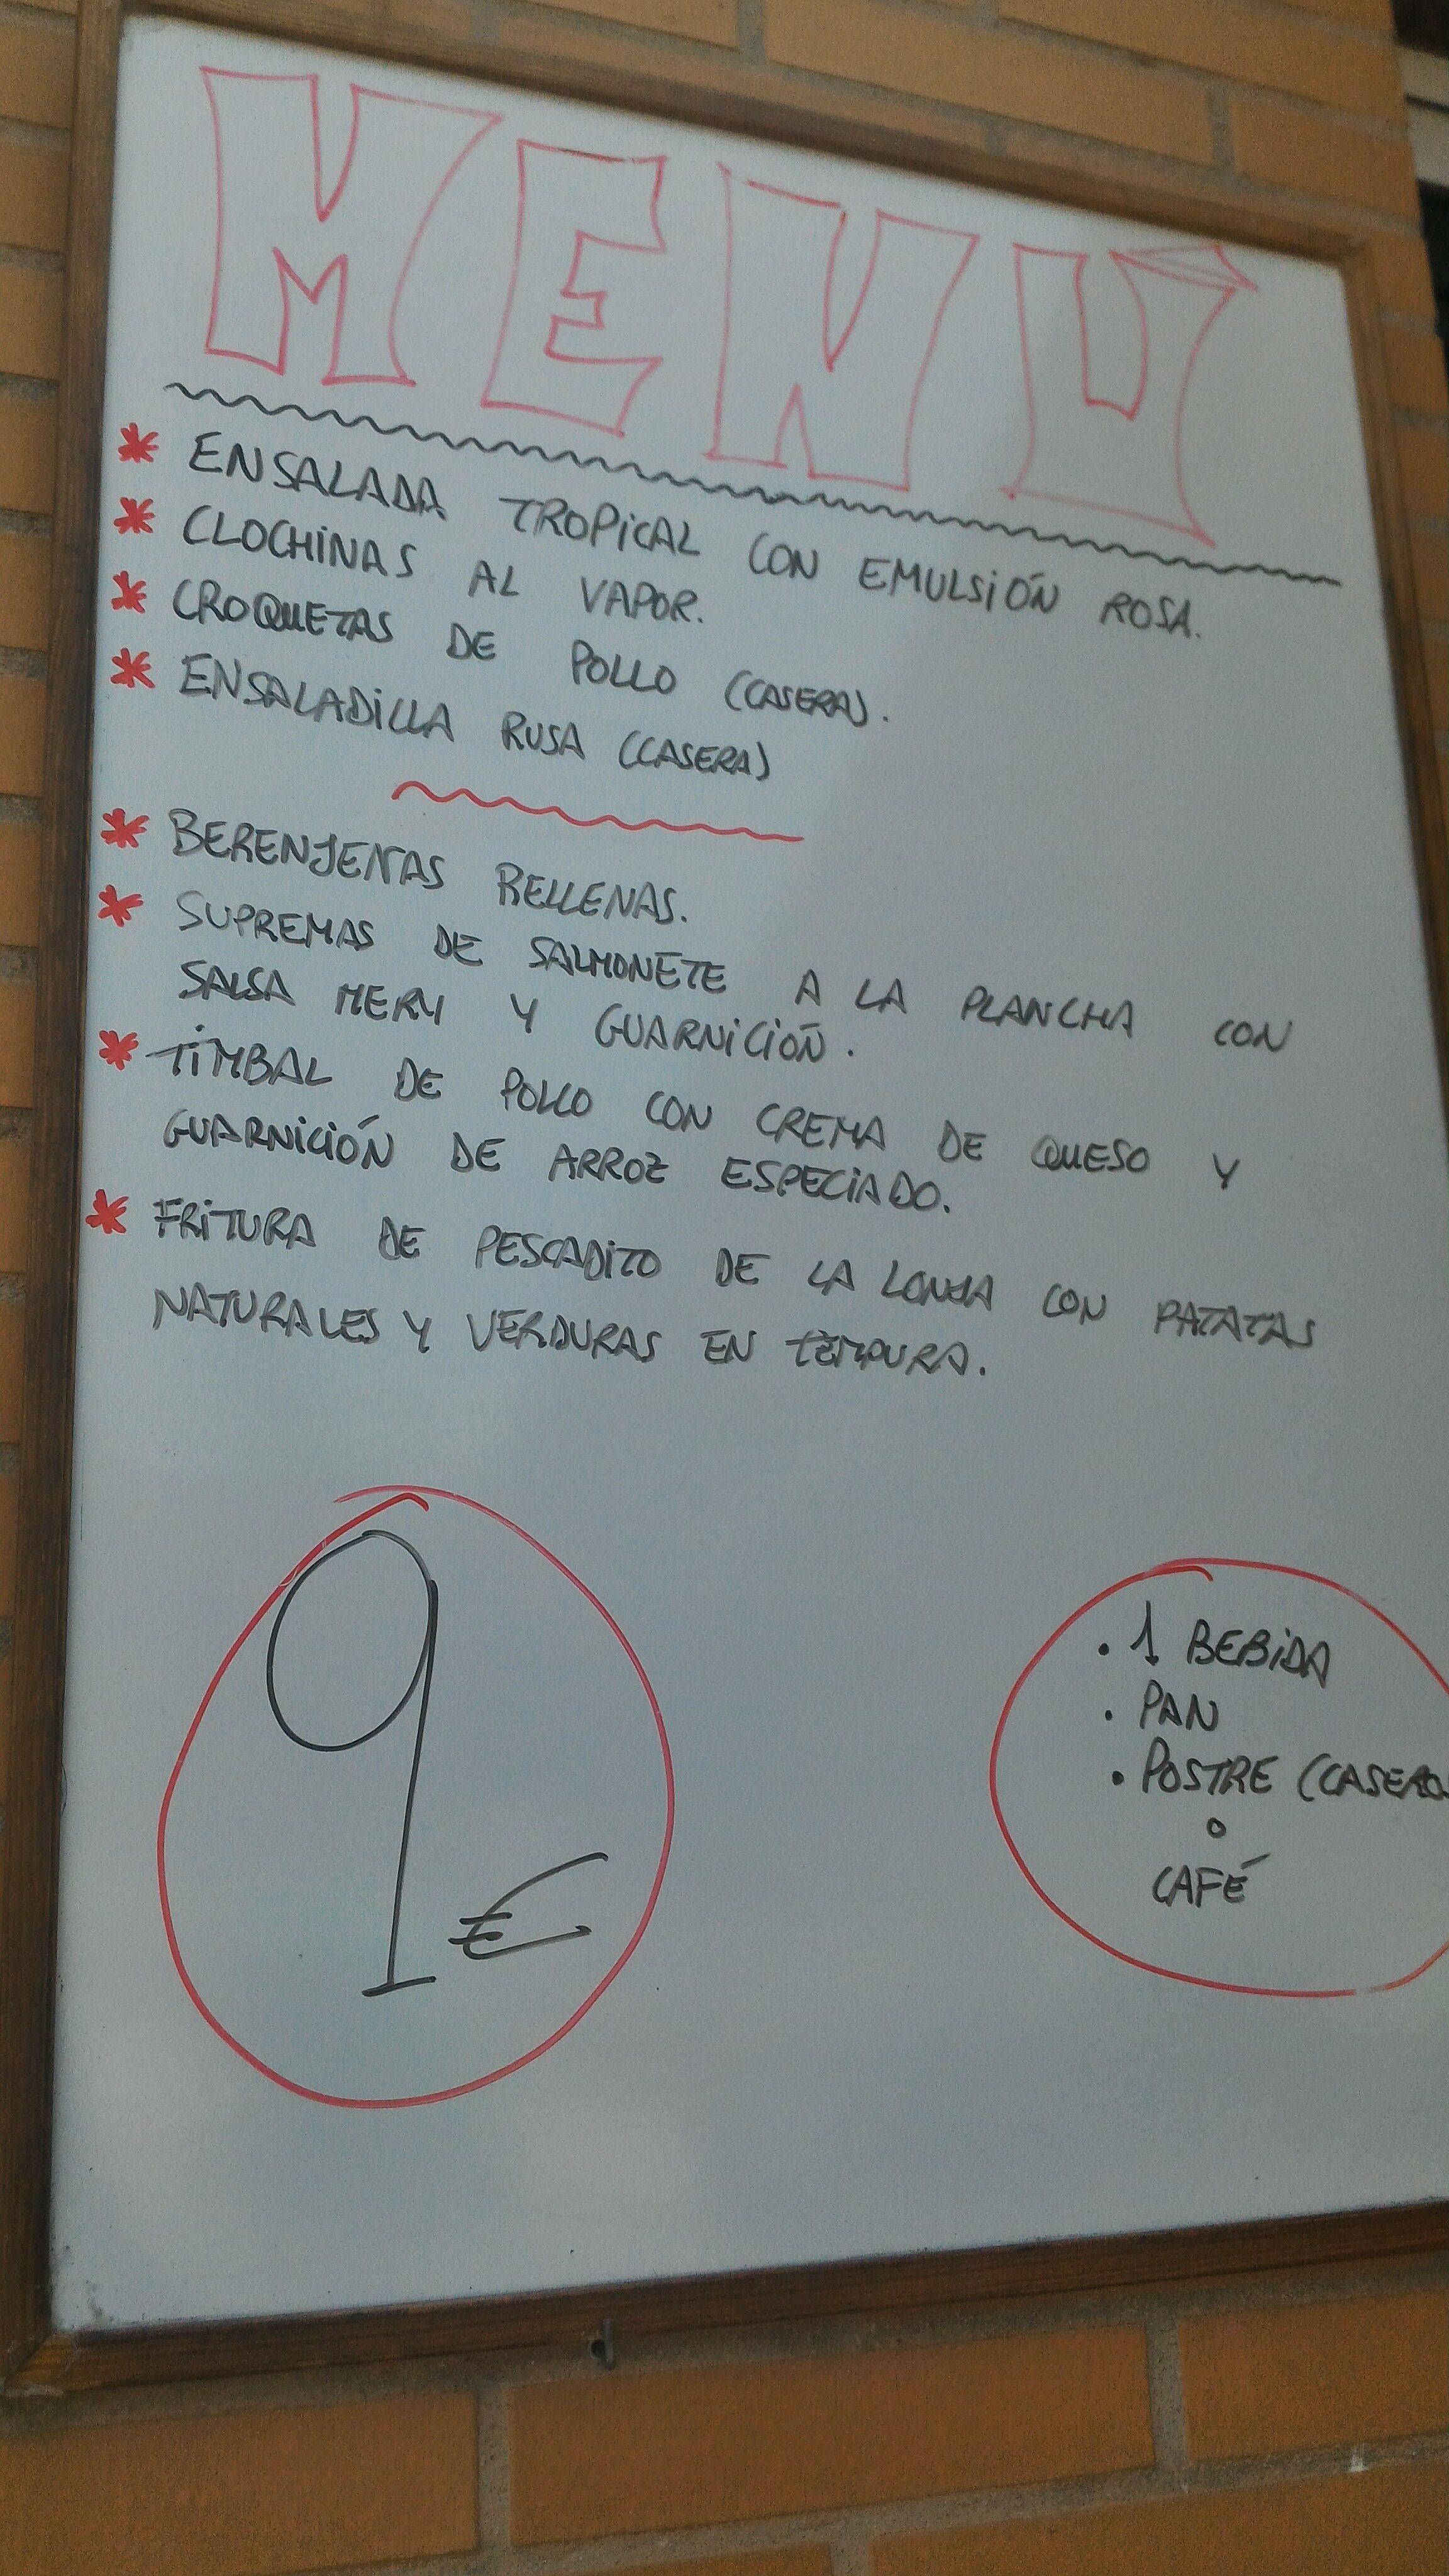 MENÚ
* ENSALADA TROPICAL CON EMULSIÓN ROSA.
* CLOCHINAS AL VAPOR.
* CROQUETAS DE POLLO (CASERA).
* ENSALADILLA RUSA (CASERA)
* BERENJENAS RELLENAS.
* SUPREMAS DE SALMONETE A LA PLANCHA CON
SALSA MERY Y GUARNICIÓN.
* TIMBAL DE POLLO CON CREMA DE QUESO Y
GUARNICIÓN DE ARROZ ESPECIADO.
* FRITURA DE PESCADITO DE LA LONJA CON PATATAS
NATURALES Y VERDURAS EN TEMPURA.
9 €
• 1 BEBIDA
• PAN
• POSTRE (CASERO
o
CAFÉ